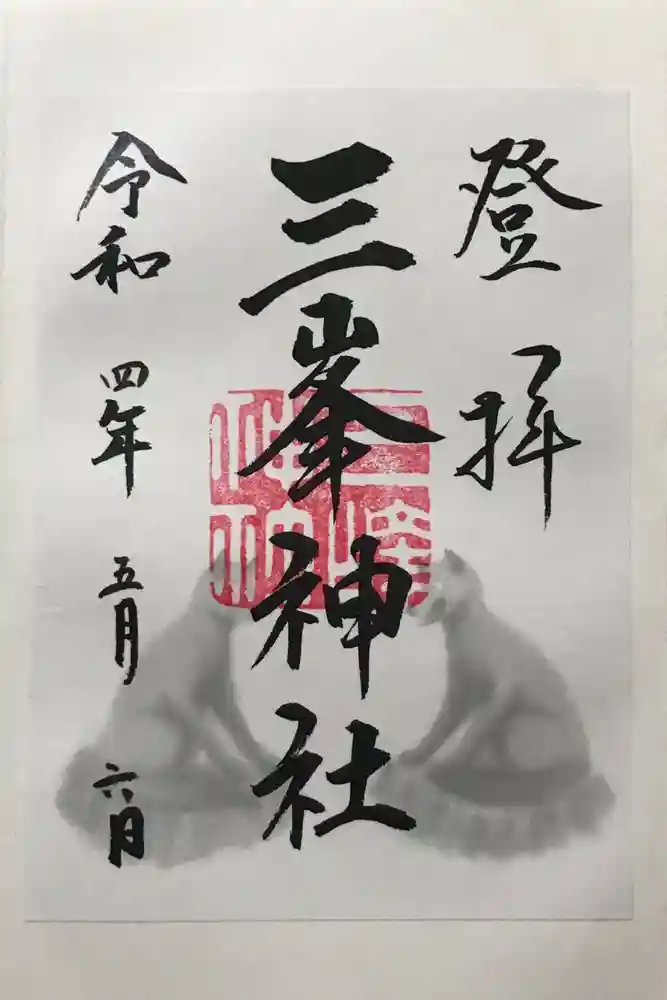 登拝
三峯神社
三峯神社
令和四年五月六日